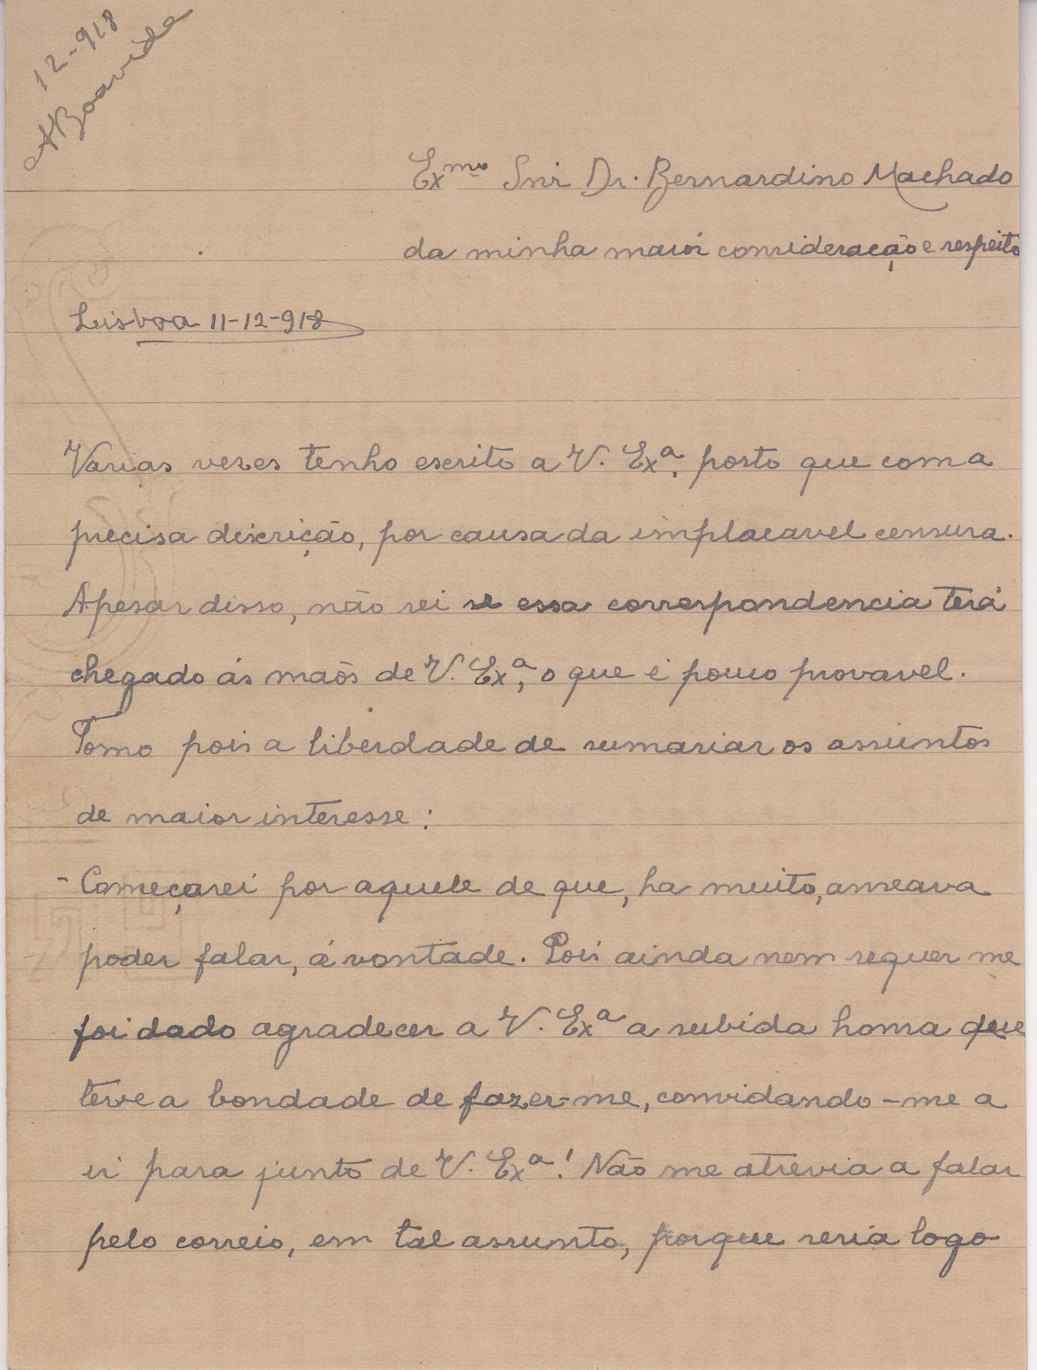 12-918
ABoavida
Exmo Snr Dr. Bernardino Machado
da minha maior consideração e respeito
Lisboa 11-12-918
Varias veses tenho escrito a V. Exª, posto que com a
precisa discrição, por causa da implacavel censura.
Apesar disso, não sei se essa correspondencia terá
chegado ás maõs de V. Exª, o que é pouco provavel.
Tomo pois a liberdade de sumariar os assuntos
de maior interesse:
- Começarei por aquele de que, ha muito, anseava
poder falar, á vontade. Pois ainda nem sequer me
foi dado agradecer a V. Exª a subida honra que
teve a bondade de fazer-me, convidando-me a
ir para junto de V. Exª! Não me atrevia a falar
pelo correio, em tal assunto, porque seria logo